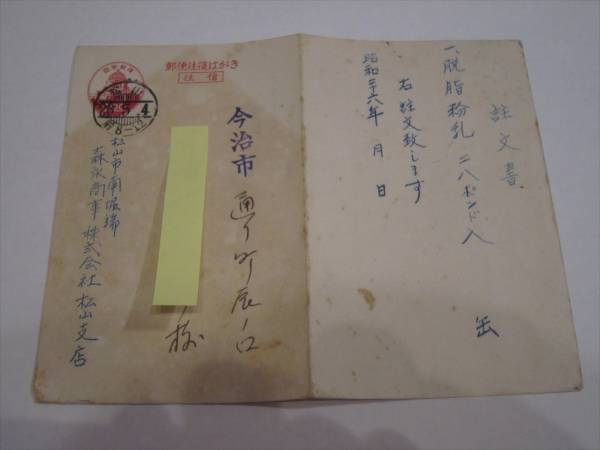 註文書
一、脱脂粉乳 二八ポンド入 缶
右註文致します
昭和二十六年 月 日
郵便往復はがき
往信
今治市
通り町辰ノ口
様
松山市南堀端
森永商事株式会社松山支店